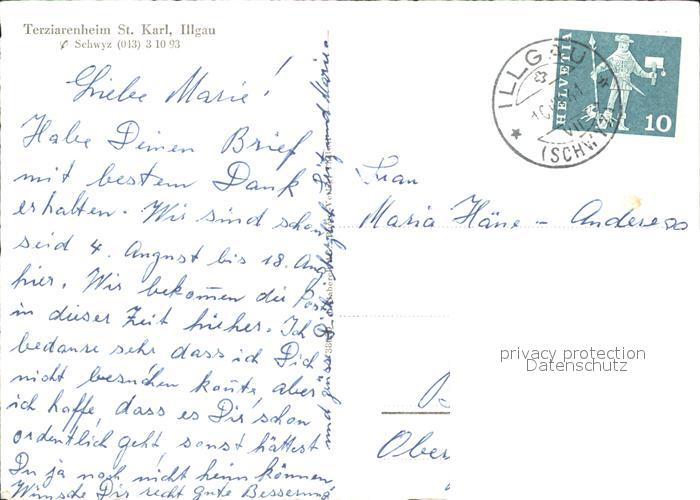 Terziarenheim St. Karl, Illgau
Schwyz (013) 3 10 93
Liebe Marie!
Habe Deinen Brief
mit bestem Dank
erhalten. Wir sind schon
seid 4. August bis 18. Aug
hier. Wir bekommen die Post
in dieser Zeit hieher. Ich
bedaure sehr dass ich Dich
nicht besuchen konte, aber
ich hoffe, dass es Dir schon
ordentlich geht, sonst hättest
Du ja noch nicht heim können,
Wünsche Dir recht gute Besserung
und Maria
Frau
Maria Häne - Anderegg
Ober
HELVETIA
10
ILLGAU
(SCHWYZ)
privacy protection
Datenschutz